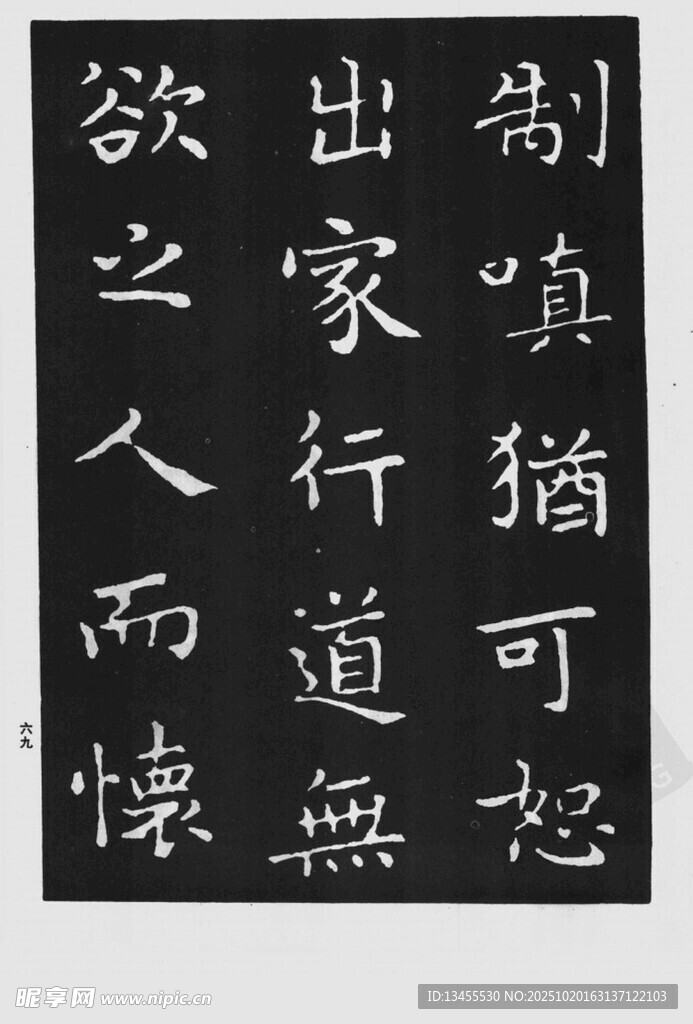 制嗔猶可恕
出家行道無
欲之人而懷
六九
昵享网 www.nipic.cn
ID:13455530 NO:20251020163137122103